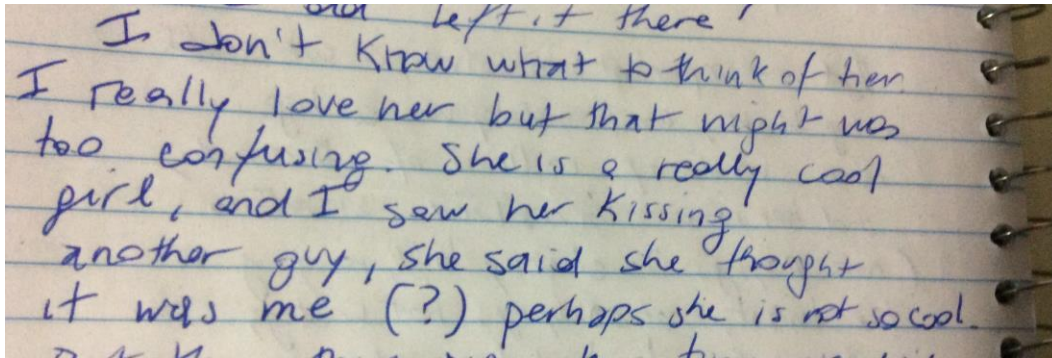 and left it there
I don't know what to think of her.
I really love her but that night was
too confusing. She is a really cool
girl, and I saw her kissing
another guy, she said she thought
it was me (?) perhaps she is not so cool.